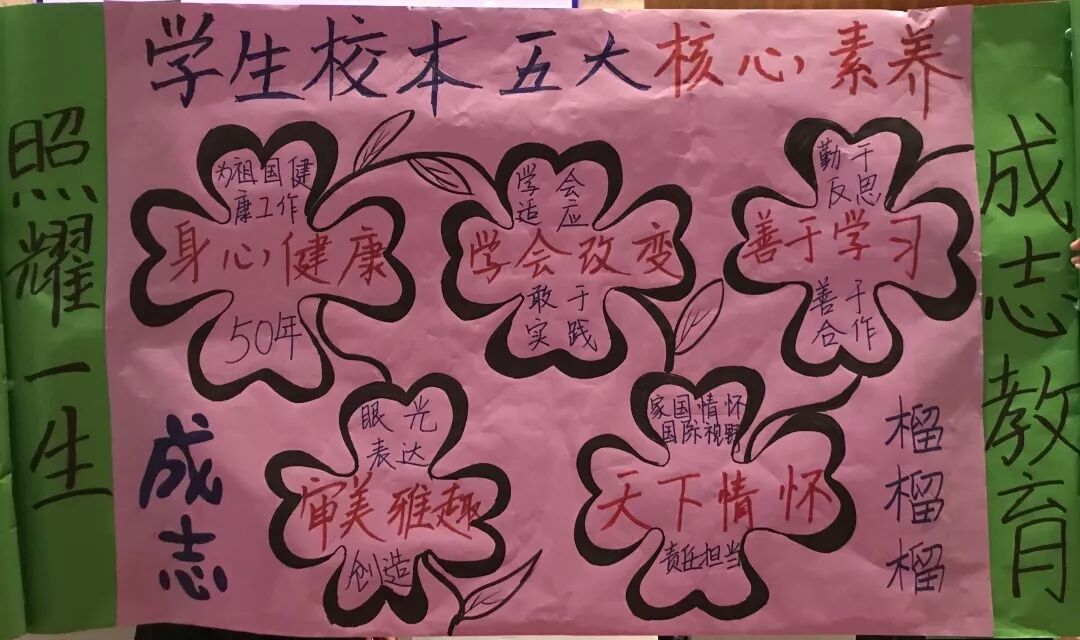 学生校本五大核心素养
成志教育
照耀一生
为祖国健
康工作
身心健康
50年
学会
适应
学会改变
敢于
实践
勤于
反思
善于学习
善于
合作
眼光
表达
审美雅趣
创造
家国情怀
国际视野
天下情怀
责任担当
成志
榴
榴
榴